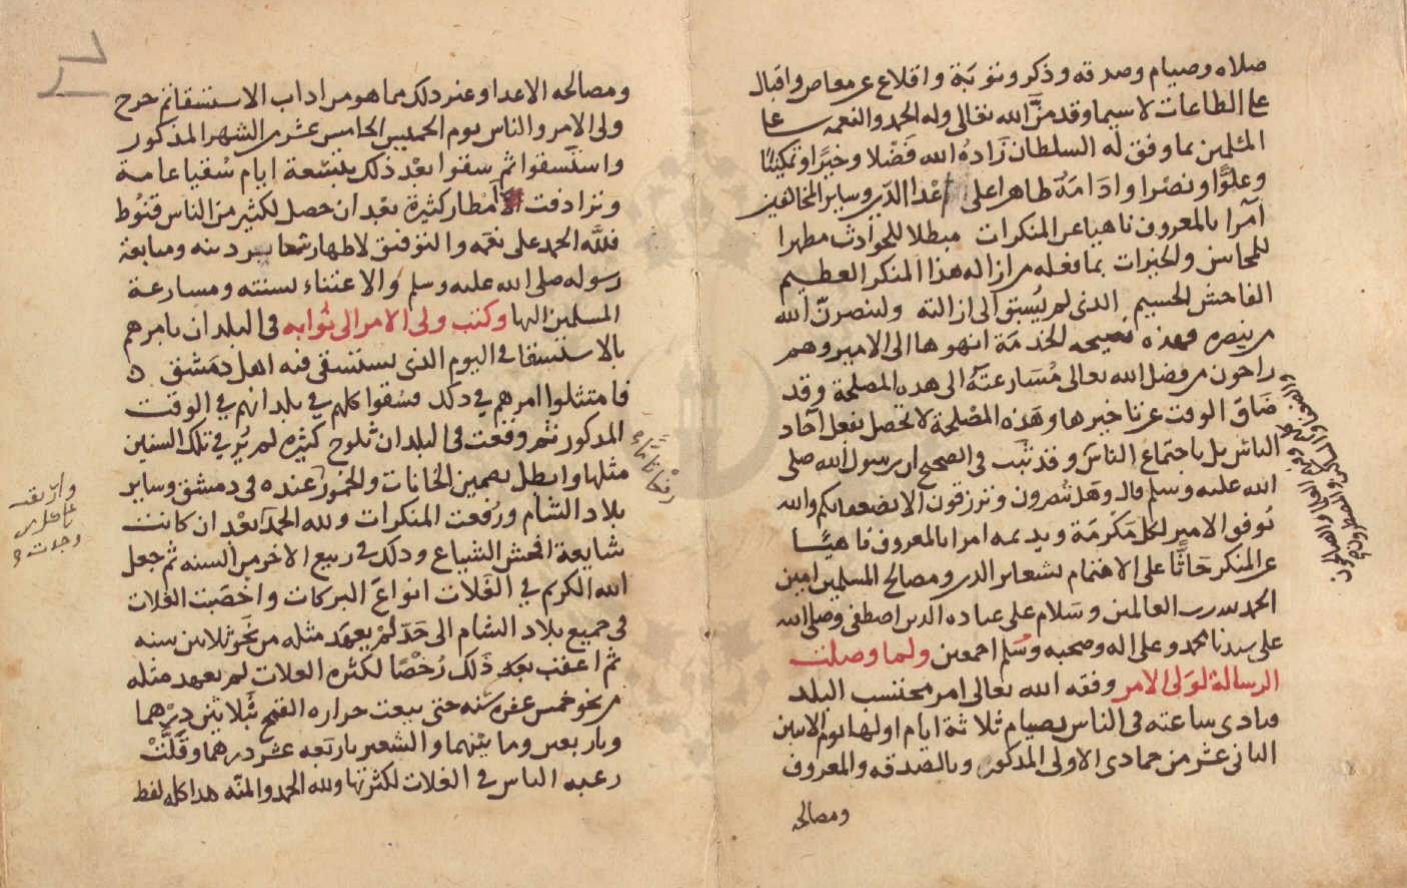 صلاه وصيام وصدقه وذكر وتوبة واقلاع عن معاص واقبال
على الطاعات لا سيما وقد منّ الله تعالى وله الحمد والنعمه على
المسلمين بما وفق له السلطان زاده الله فضلا وخيرا وتمكينا
وعلوا ونصرا وادامه ظاهرا على اعدا الدين وساير المخالفين
آمرا بالمعروف ناهيا عن المنكرات مبطلا للحوادث مظهرا
للمحاسن والخيرات بما فعله من ازاله هذا المنكر العظيم
الفاحش الجسيم الذى لم يُسبق الى ازالته ولينصرنّ الله
من ينصره فهذه نصيحه الخدمة انهوها الى الامير وهم
راجون من فضل الله تعالى مُسَارعتَه الى هذه المصلحة وقد
ضاق الوقت عن تاخيرها وهذه المصلحة لا تحصل بفعل آحاد
الناس بل باجتماع الناس وقد ثبت فى الصحيح ان رسول الله صلى
الله عليه وسلم قال وهل تنصرون وترزقون الا بضعفايكم والله
يُوفق الامير لكل مكرمَة ويديمه امرا بالمعروف ناهيًا
عن المنكر حاثًّا على الاهتمام بشعاير الدين ومصالح المسلمين امين
الحمد لله رب العالمين وسلام على عباده الذين اصطفى وصلى الله
على سيدنا محمد وعلى اله وصحبه وسلم اجمعين ولما وصلت
الرسالة لولى الامر وفقه الله تعالى امر محتسب البلد
فنادى ساعته فى الناس بصيام ثلاثة ايام اولها يوم الاثنين
الثانى عشر من جمادى الاولى المذكور وبالصدقه والمعروف
ومصالحه
ومصالحه الاعدا وغير ذلك مما هو من اداب الاستسقا ثم خرج
ولى الامر والناس يوم الخميس الخامس عشر من الشهر المذكور
واستسقوا ثم سقوا بعد ذلك بتسعة ايام سُقيا عامة
وترادفت امطار كثيرة بعد ان حصل لكثير من الناس قنوط
فلله الحمد على نعمه والتوفيق لاظهار شعاير دينه ومتابعة
رسوله صلى الله عليه وسلم والاعتناء بسنته ومسارعة
المسلمين اليها وكتب ولى الامر الى نوابه فى البلدان يامرهم
بالاستسقا فى اليوم الذى يستسقى فيه اهل دمشق
فامتثلوا امرهم في ذلك فسقوا كلهم في بلدانهم في الوقت
المذكور ثم وقعت فى البلدان ثلوج كثيره لم يُر في تلك السنين
مثلها وابطل تضمين الخانات والخمور عنده فى دمشق وساير
بلاد الشام ورُفعت المنكرات ولله الحمد بعد ان كانت
شايعة افحش الشياع وذلك فى ربيع الاخر من السنه ثم جعل
الله الكريم في الغلات انواع البركات واخصبت الغلات
فى جميع بلاد الشام الى حد لم يعهد مثله من نحو ثلاثين سنه
ثم اعقب بعد ذلك رُخصًا لكثره الغلات لم يعهد مثله
من نحو خمس عشره سنه حتى بيعت غراره القمح بثلاثين درهما
وباربعين وما بينهما والشعير باربعه عشر درهما وقلّت
رغبه الناس في الغلات لكثرتها ولله الحمد والمنّه هذا كله لفظ